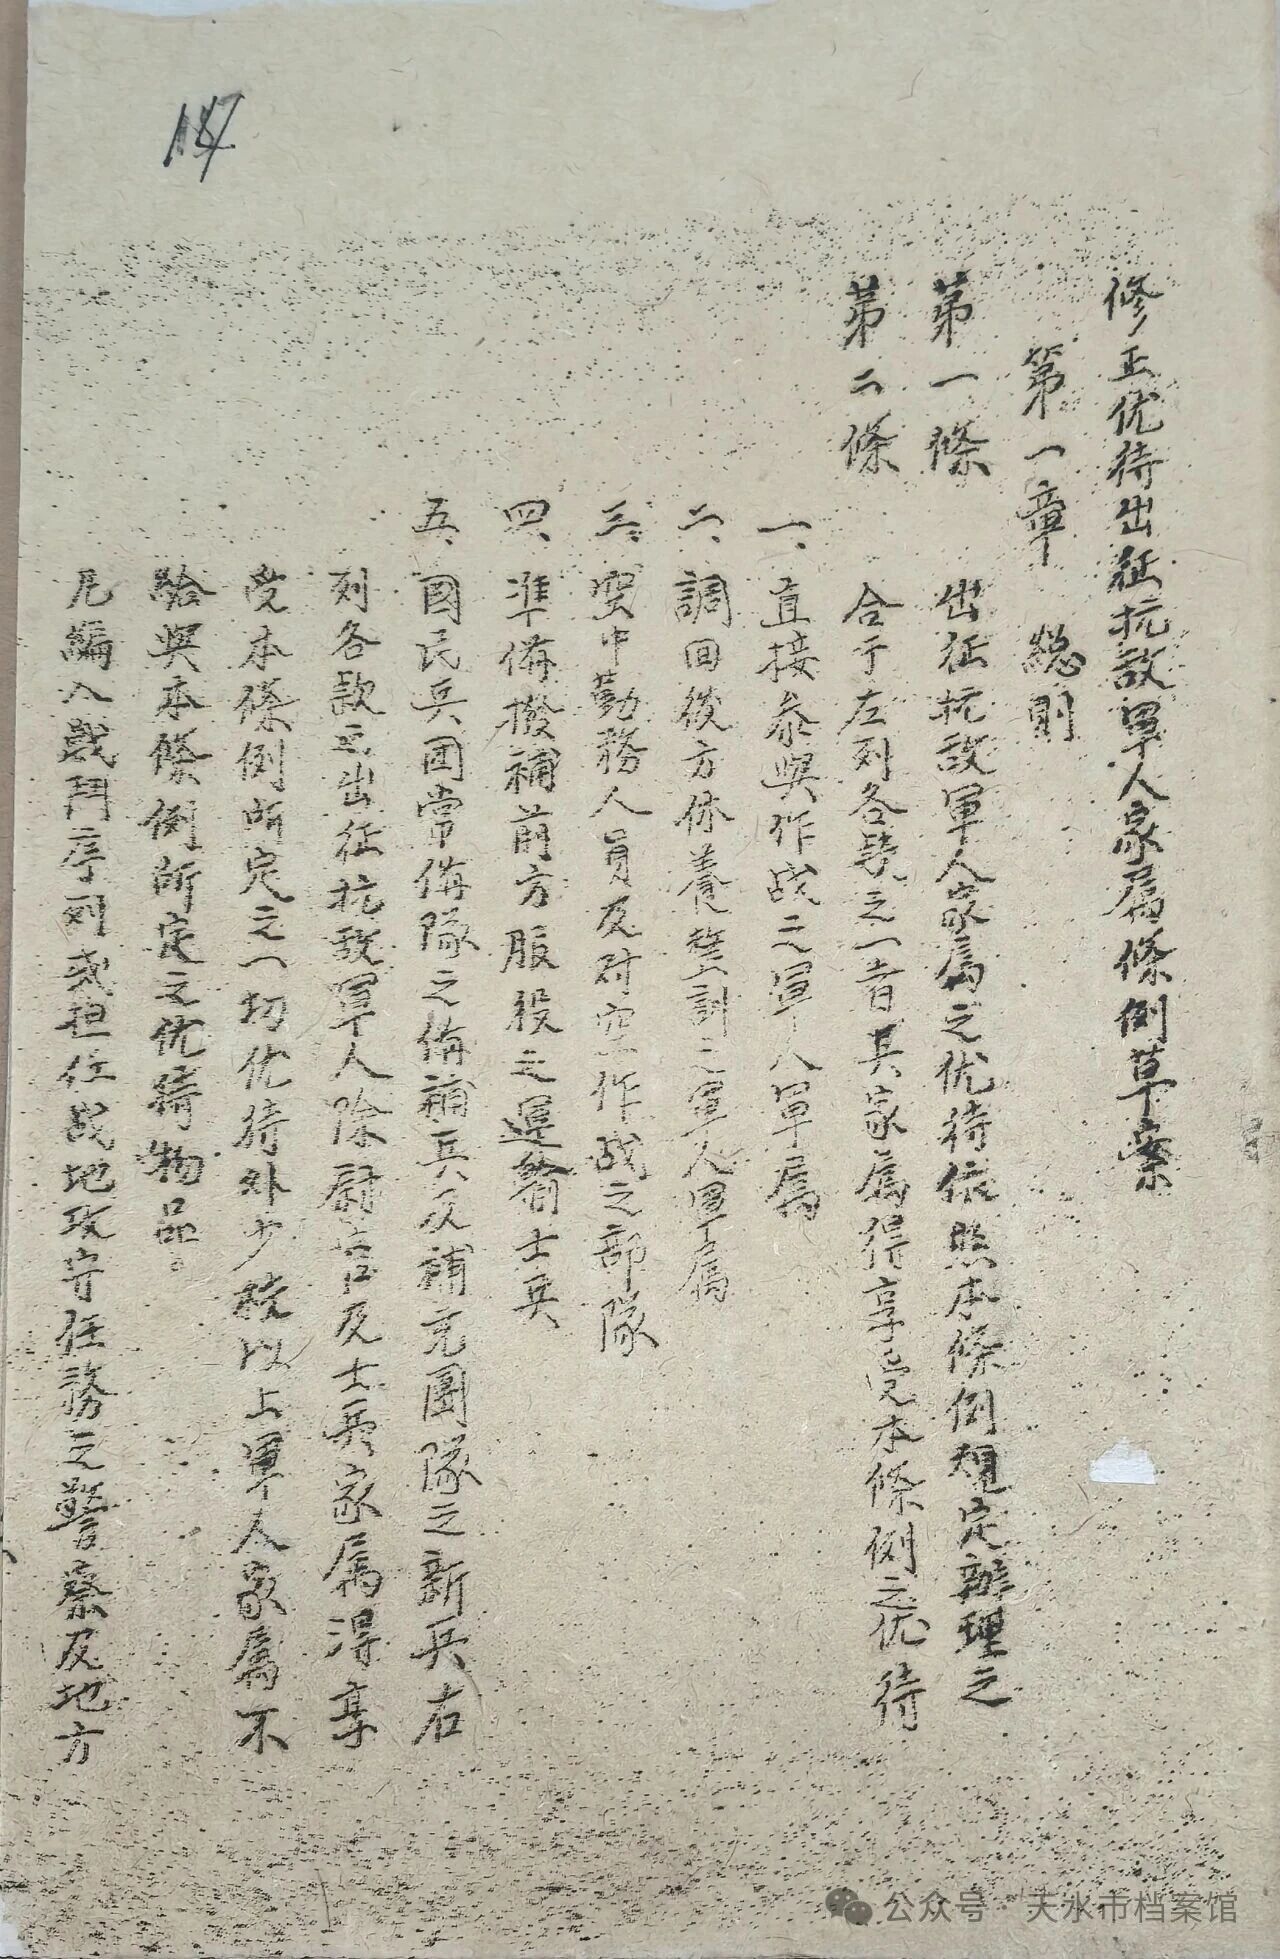 修正优待出征抗敌軍人家属條例草案
第一章 總則
第一條 出征抗敌軍人家属之优待依照本條例規定辦理之
第二條 合于左列各款之一者其家属得享受本條例之优待
一、直接参與作战之軍人軍属
二、調回後方休養整訓之軍人軍属
三、空中勤務人員及对空作战之部隊
四、準備撥補前方服役之運輸士兵
五、國民兵团常備隊之備補兵及補充團隊之新兵右
列各款之出征抗敌軍人除尉官及士兵家属得享
受本條例所定之一切优待外少校以上軍人家属不
給與本條例所定之优待物品。
凡編入戰鬥序列或担任战地攻守任務之警察及地方
公众号 · 天水市档案馆